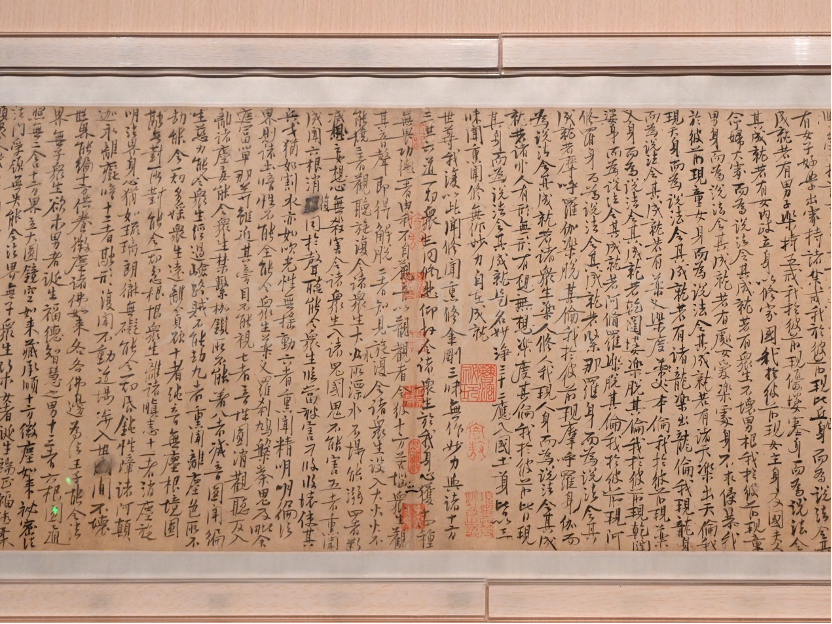 有女子好學出家持諸禁戒我於彼前現比丘
成就若有男子樂持五戒我於彼前現優婆塞身而為說法令
其成就若有女內政立身以修家國我於彼前現女主身及國夫人
命婦大家而為說法令其成就若有衆生不壞男根我於彼前現童
男身而為說法令其成就若有處女愛樂處身不求侵暴我
於彼前現童女身而為說法令其成就若有諸天樂出天倫我
現天身而為說法令其成就若有諸龍樂出龍倫我現龍身
而為說法令其成就若有藥叉樂度本倫我於彼前現藥
叉身而為說法令其成就若乾闥婆樂脫其倫我於彼前現乾闥
婆身而為說法令其成就若阿脩羅樂脫其倫我於彼前現阿
脩羅身而為說法令其成就若緊那羅身而為說法令其
成就若摩呼羅伽樂脫其倫我於彼前現摩呼羅伽身而
為說法令其成就若諸衆生樂人修人我現人身而為說法令其成
就若諸非人有形無形有想無想樂度其倫我於彼前皆現
其身而為說法令其成就是名妙淨三十二應入國土身皆以三
昧聞熏聞修無作妙力自在成就
世尊我復以此聞熏聞修金剛三昧無作妙力與諸十方
三世六道一切衆生同悲仰故令諸衆生於我身心獲十四種
無畏功德一者由我不自觀音以觀觀者令彼十方苦惱衆生觀
其音聲即得解脫二者知見旋復令諸衆生設入大火火不
能燒三者觀聽旋復令諸衆生大水所漂水不能溺四者斷
滅妄想心無殺害令諸衆生入諸鬼國鬼不能害五者熏聞
成聞六根消復同於聲聽能令衆生臨當被害刀段段壞使其
兵戈猶如割水亦如吹光性無搖動六者聞熏精明明徧法
界則諸幽暗性不能全能令衆生藥叉羅剎鳩槃荼鬼及毗舍
遮富單那等雖近其傍目不能視七者音性圓消觀聽返入
離諸塵妄能令衆生禁繫枷鎖所不能著八者滅音圓聞徧
生慈力能令衆生經過嶮路賊不能劫九者熏聞離塵色所不
劫能令一切多婬衆生遠離貪欲十者純音無塵根境圓
融無對所對能令一切忿恨衆生離諸瞋恚十一者消塵旋
明法界身心猶如瑠璃朗徹無礙能令一切昏鈍性障諸阿顛
迦永離癡暗十二者融形復聞不動道場涉入世間不壞
世界能徧十方供養微塵諸佛如來各各佛邊為法王子能令法
界無子衆生欲求男者誕生福德智慧之男十三者六根圓通
照無二含十方界立大圓鏡空如來藏承順十方微塵如來秘密法
法門受領無失能令法界無子衆生欲求女者誕生端正福德柔